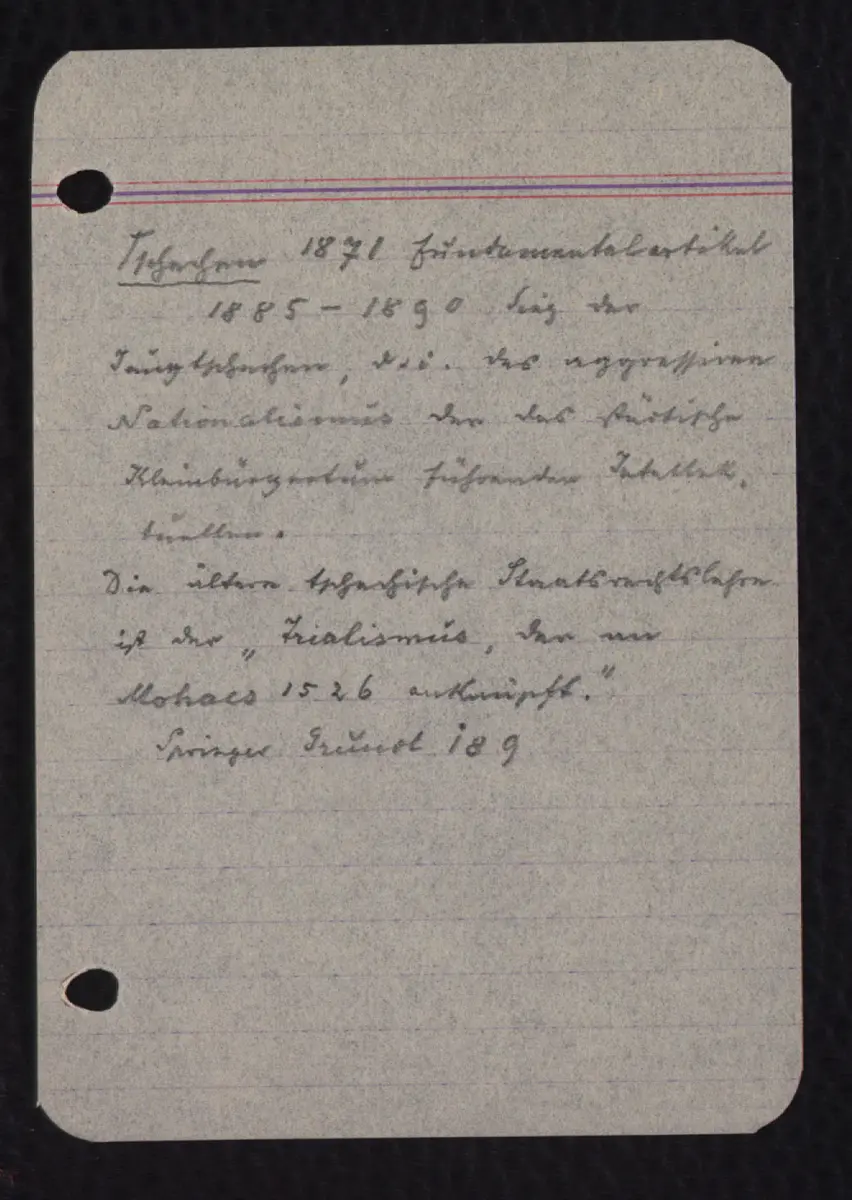 Tschechen 1871 Fundamentalartikel
1885 – 1890 Sieg der
Jungtschechen, d. i. des aggressiven
Nationalismus der das städtische
Kleinbürgertum führenden Intellek-
tuellen.
Die ältere tschechische Staatsrechtslehre
ist der „Trialismus, der an
Mohacs 1526 anknüpft."
Springer Grundl 189